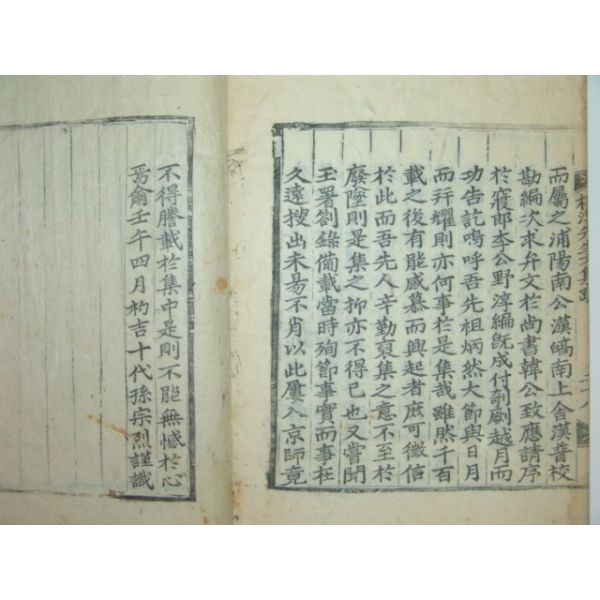 而屬之浦陽南公漢皜南上舍漢晉校
勘編次求弁文於尚書韓公致應請序
於寢郎李公野淳編旣成付剞劂越月而
功告訖嗚呼吾先祖炳然大節與日月
而幷耀則亦何事於是集哉雖然千百
載之後有能感慕而興起者庶可徵信
於此而吾先人辛勤裒集之意不至於
廢墜則是集之抑亦不得已也又嘗聞
玉署劄錄備載當時殉節事實而事在
久遠搜出未易不肖以此屢入京師竟
不得謄載於集中是則不能無憾於心
焉爾壬午四月杓吉十代孫宗烈謹識